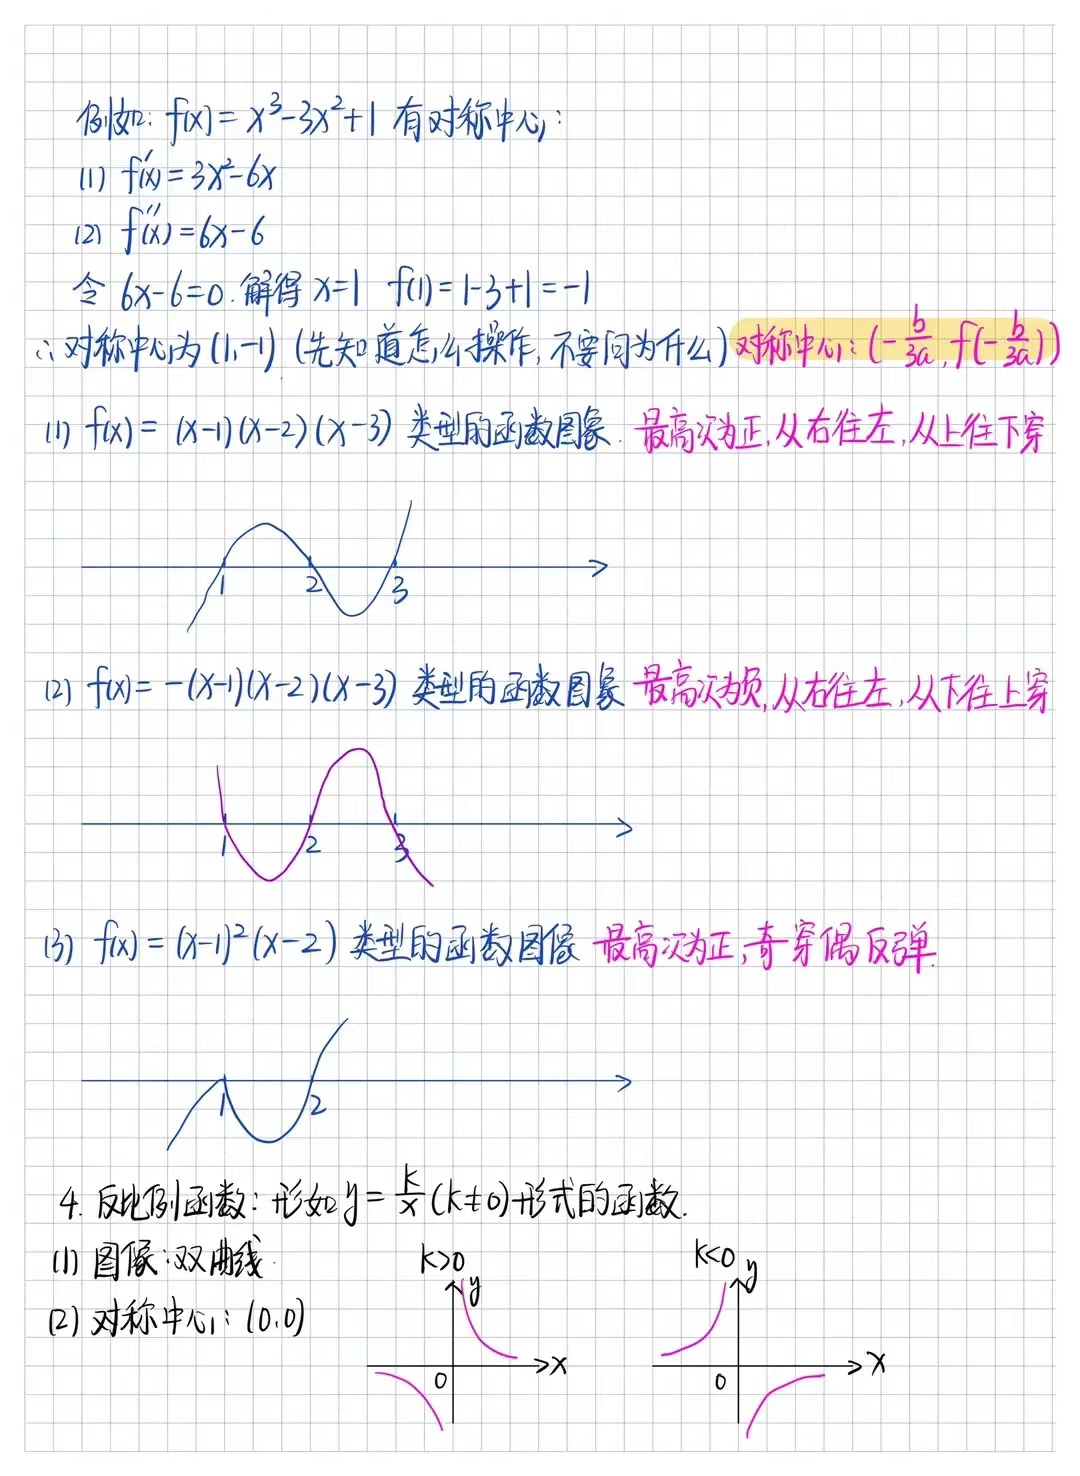 例如: f(x)=x³-3x²+1 有对称中心:
(1) f'(x)=3x²-6x
(2) f''(x)=6x-6
令 6x-6=0. 解得 x=1 f(1)=1-3+1=-1
∴对称中心为(1,-1) (先知道怎么操作,不要问为什么) 对称中心:(-b/3a, f(-b/3a))
(1) f(x)= (x-1)(x-2)(x-3) 类型的函数图象. 最高次为正,从右往左,从上往下穿
1 2 3
(2) f(x)= -(x-1)(x-2)(x-3) 类型的函数图象 最高次为负,从右往左,从下往上穿
1 2 3
(3) f(x)=(x-1)²(x-2) 类型的函数图像 最高次为正,奇穿偶反弹.
1 2
4. 反比例函数: 形如y=k/x(k≠0)形式的函数.
(1) 图像:双曲线
(2) 对称中心: (0,0)
k>0
y
x
0
k<0
y
x
0